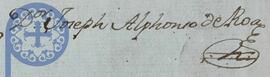 Dor Joseph Alphonso de Roa